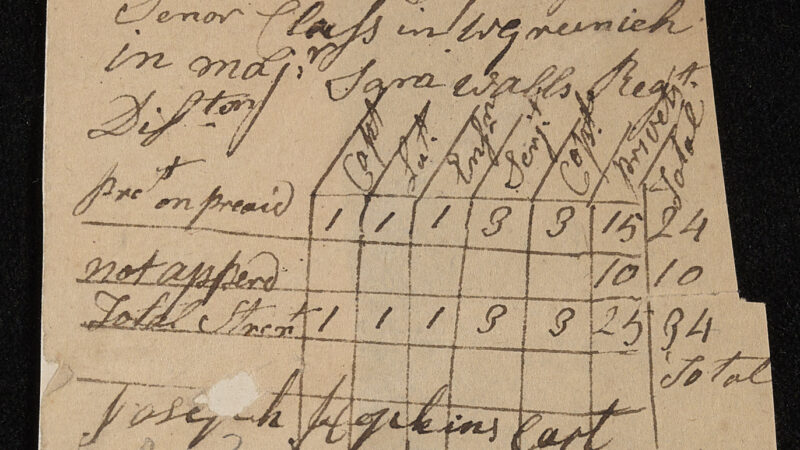 Senor Class in wgreenich
in majr Isra walls Regt.
Disston
Capt Lut. Ensn Serjt Copl. privets Total
pret on preaid 1 1 1 3 3 15 24
not apperd 10 10
Total Strent 1 1 1 3 3 25 34
Total
Joseph Hopkins Capt